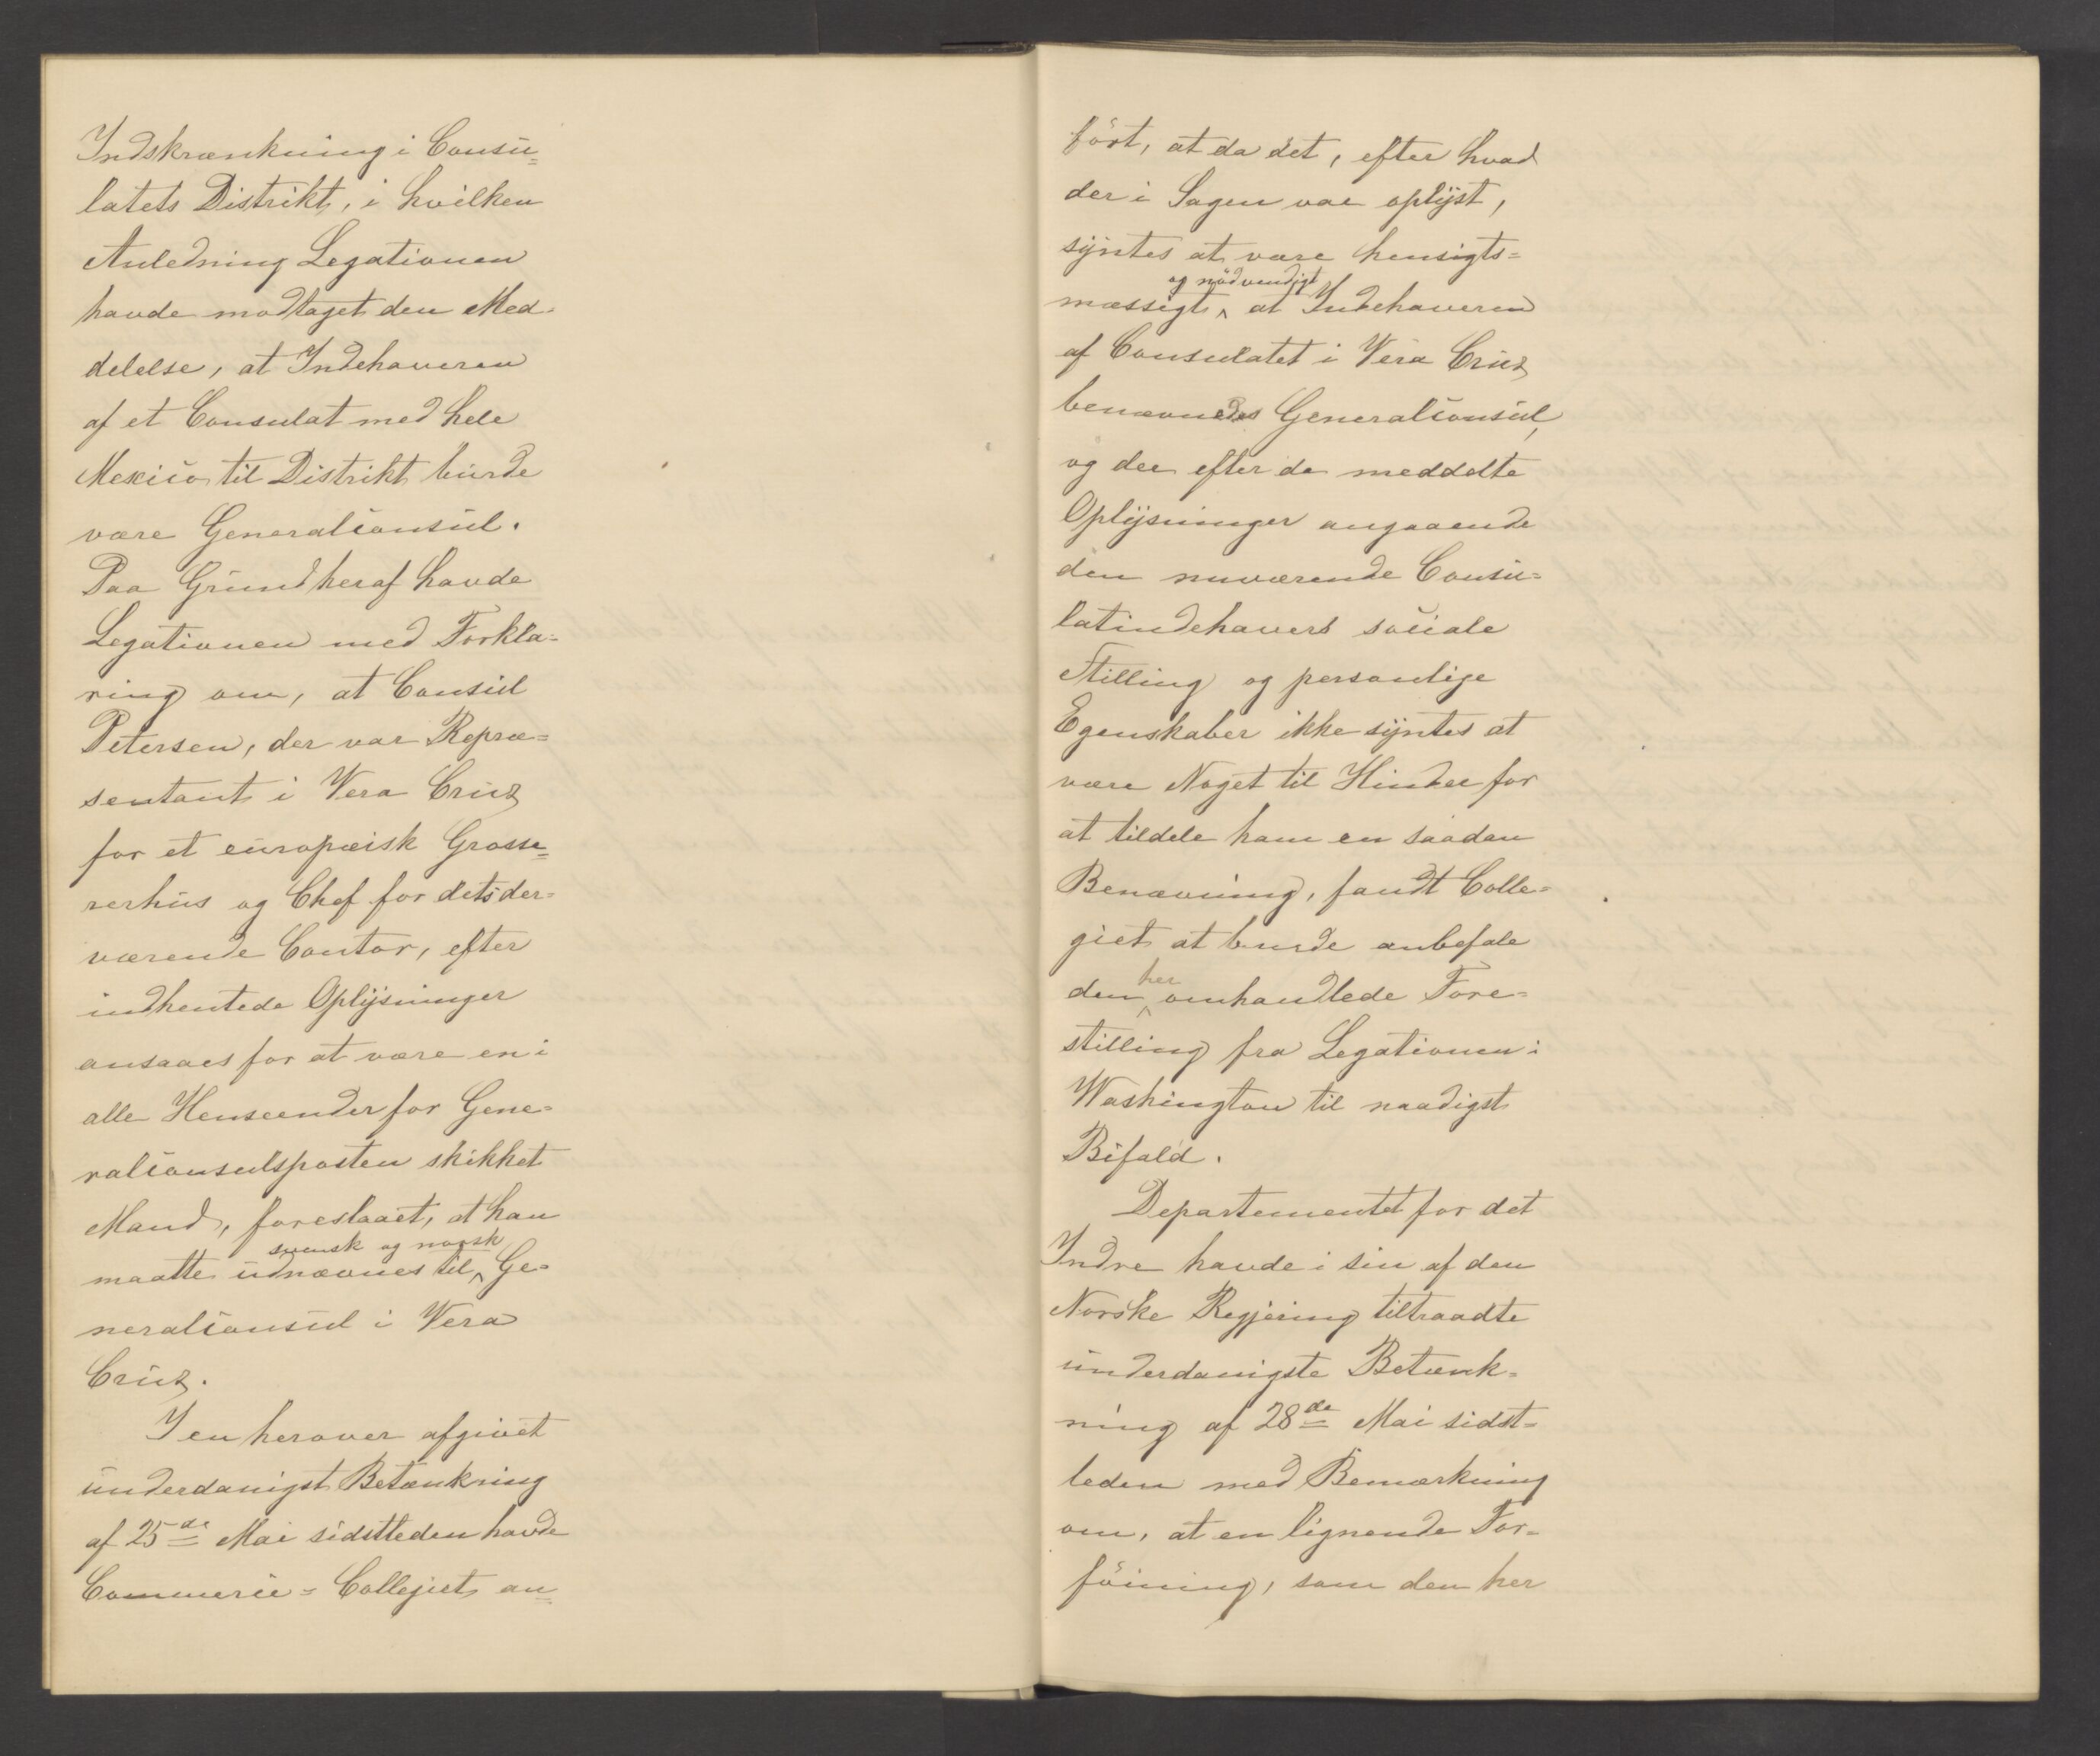 Indskrænkning i Consu=
latets Distrikt, i hvilken
Anledning Legationen
havde modtaget den Med=
delelse, at Indehaveren
af et Consulat med hele
Mexico til Distrikt burde
være Generalconsul.
Paa Grund heraf havde
Legationen med Forkla=
ring om, at Consul
Petersen, der var Repræ=
sentant i Vera Cruz
for et europæisk Grosse=
rerhus og Chef for dets der=
værende Contor, efter
indhentede Oplysninger
ansaaes for at være en i
alle Henseender for Gene=
ralconsulsposten skikket
Mand, foreslaaet, at han
svensk og norsk
maatte udnævnes til ^ Ge=
neralconsul i Vera
Cruz.
I en herover afgivet
underdanigst Betænkning
af 25de Mai sidstleden havde
Commerce=Collegiet an=
fört, at da det, efter hvad
der i Sagen var oplyst,
syntes at være hensigts=
og nödvendigt
mæssigt ^ at Indehaveren
af Consulatet i Vera Cruz
benævnedes Generalconsul,
og der efter de meddelte
Oplysninger angaaende
den nuværende Consu=
latindehavers sociale
Stilling og personlige
Egenskaber ikke syntes at
være Noget til Hinder for
at tildele ham en saadan
Benævning, fandt Colle=
giet at burde anbefale
her
den ^ omhandlede Fore=
stilling fra Legationen i
Washington til naadigst
Bifald.
Departementet for det
Indre havde i sin af den
Norske Regjering tiltraadte
underdanigste Betænk=
ning af 28de Mai sidst=
leden med Bemærkning
om, at en lignende For=
föining, som den her